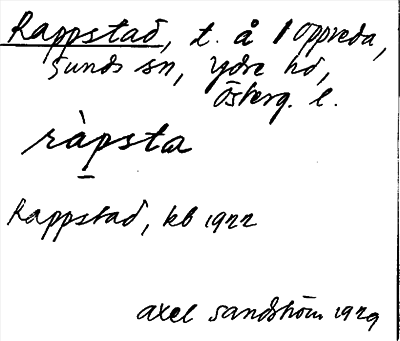 Rappstad, t. å 1 Oppreda,
Sunds sn, Ydre hd,
Österg. l.
ràpsta
Rappstad, kb 1922
Axel Sandström 1929